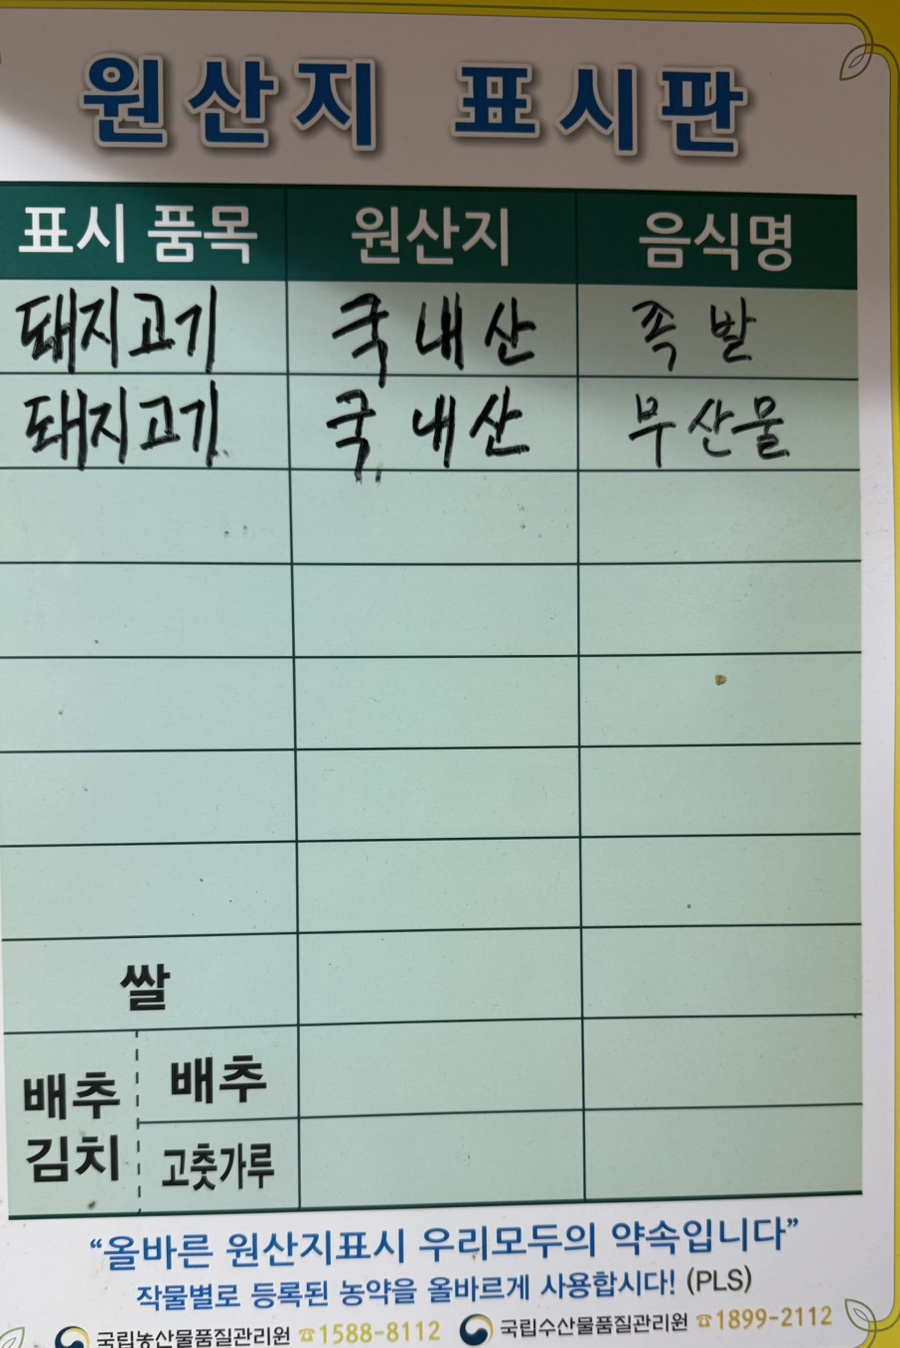 원산지 표시판
표시 품목 원산지 음식명
돼지고기 국내산 족발
돼지고기 국내산 부산물
쌀
배추김치 배추
고춧가루
“올바른 원산지표시 우리모두의 약속입니다”
작물별로 등록된 농약을 올바르게 사용합시다! (PLS)
국립농산물품질관리원 ☎1588-8112 국립수산물품질관리원 ☎1899-2112